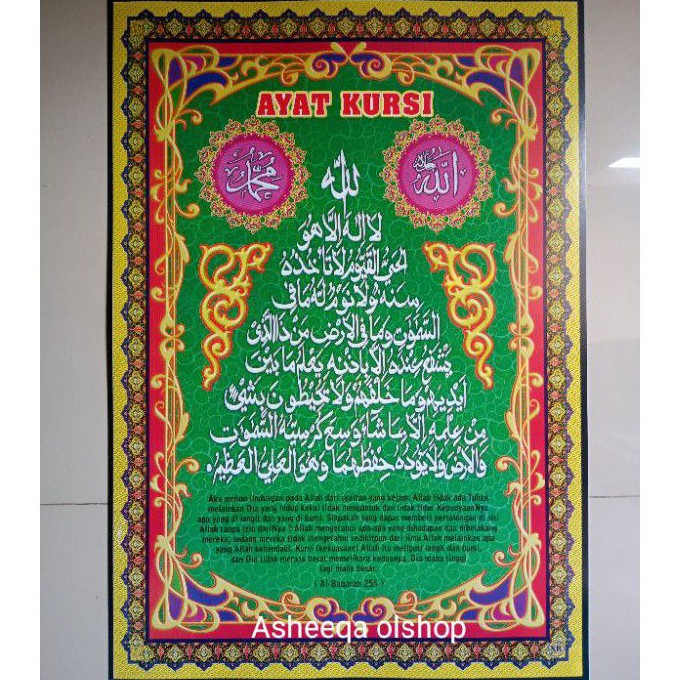 AYAT KURSI
محمد
الله
الله
لا اله الا هو
الحي القيوم لا تأخذه
سنة ولا نوم له ما في
السموت وما في الارض من ذا الذي
يشفع عنده الا باذنه يعلم ما بين
ايديهم وما خلفهم ولا يحيطون بشيء
من علمه الا بما شاء وسع كرسيه السموت
والارض ولا يؤده حفظهما وهو العلي العظيم
Aku mohon lindungan pada Allah dari syaitan yang kejam. Allah tidak ada Tuhan
melainkan Dia yang hidup kekal tidak mengantuk dan tidak tidur KepunyaanNya
apa yang di langit dan yang di bumi. Siapakah yang dapat memberi pertolongan di sisi
Allah tanpa izin dariNya ? Allah mengetahui apa-apa yang dihadapan dan dibelakang
mereka, sedang mereka tidak mengetahui sedikitpun dari ilmu Allah melainkan apa
yang Allah kehendaki. Kursi (kekuasaan) Allah itu meliputi langit dan bumi,
dan Dia tidak merasa berat memelihara keduanya, Dia maha tinggi
lagi maha besar.
( Al-Baqarah 255 )
Asheeqa olshop